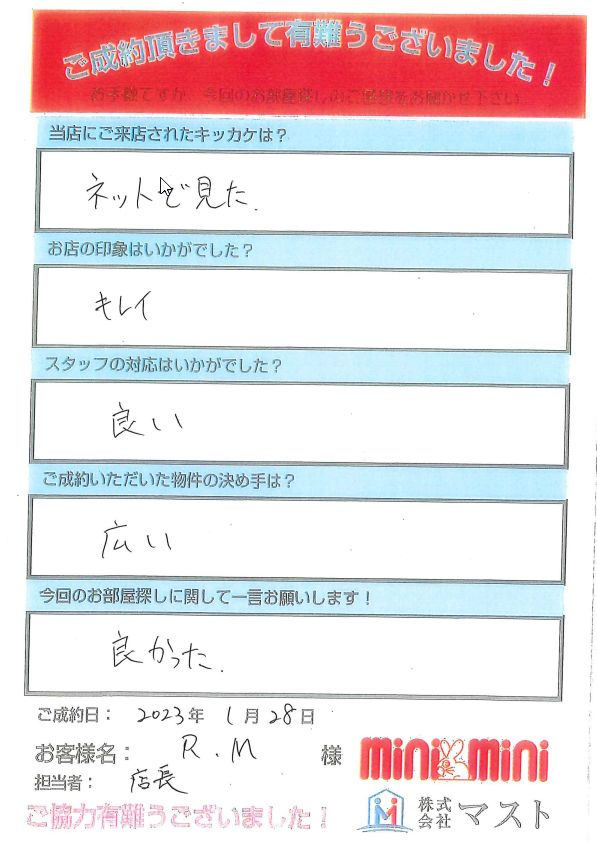 ご成約頂きまして有難うございました！
お手数ですが、今回のお部屋探しのご感想をお聞かせ下さい
当店にご来店されたキッカケは？
ネットで見た.
お店の印象はいかがでした？
キレイ
スタッフの対応はいかがでした？
良い
ご成約いただいた物件の決め手は？
広い
今回のお部屋探しに関して一言お願いします！
良かった.
ご成約日： 2023年 1月28日
お客様名： R.M 様
担当者： 店長
minimini
ご協力有難うございました！
株式会社マスト